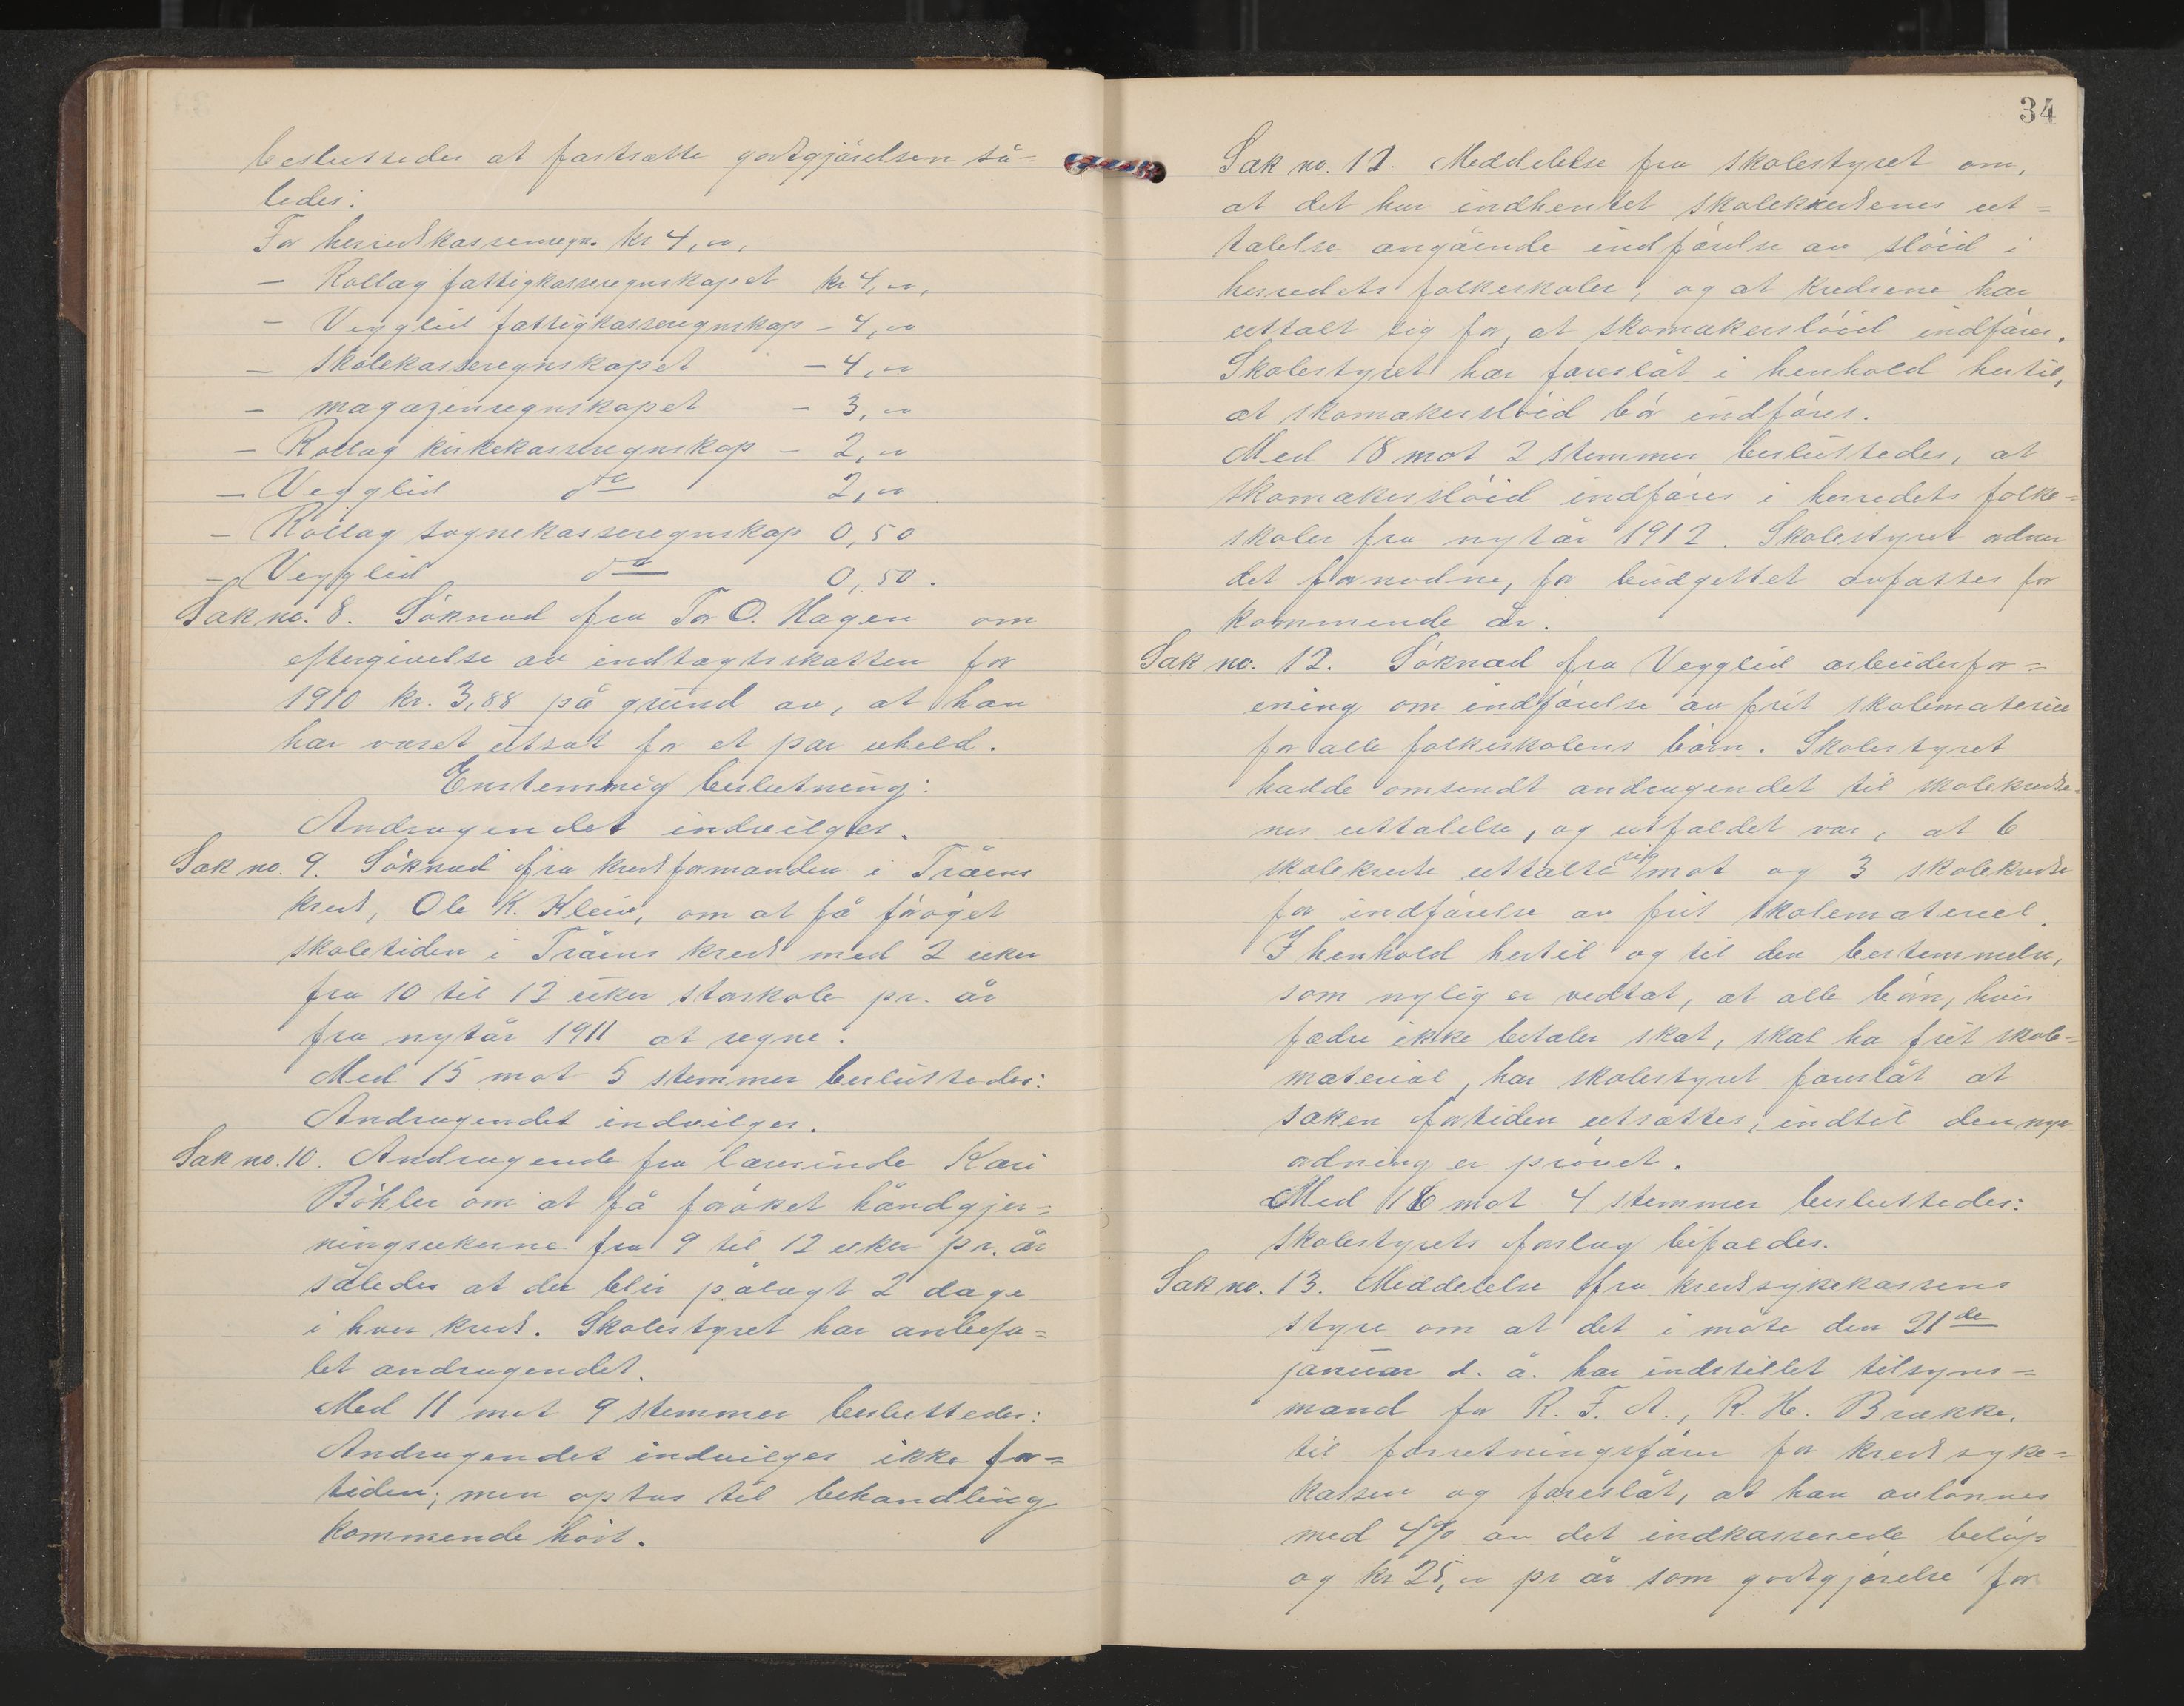 besluttedes at fastsætte godtgjörelsen så=
ledes:
For herredskasseregn. kr 4,00,
— Rollag fattigkasseregnskapet kr 4,00,
— Vegglid fattigkasseregnskap – 4,00
— Skolekasseregnskapet – 4,00
— magazinregnskapet – 3,00
— Rollag kirkekasseregnskap – 2,00
— Vegglid do 2,00
— Rollag sognekasseregnskap 0,50
— Vegglid do 0,50.
Sak no. 8. Söknad fra Tor O. Hagen om
eftergivelse av indtægtsskatten for
1910 kr. 3,88 på grund av, at han
har været utsat for et par uheld.
Enstemmig beslutning:
Andragendet indvilges.
Sak no. 9. Söknad fra kredsformanden i Tråens
kreds, Ole K. Kleiv, om at få föröget
skoletiden i Tråens kreds med 2 uker
fra 10 til 12 uker storskole pr. år
fra nytår 1911 at regne.
Med 15 mot 5 stemmer besluttedes:
Andragendet indvilges.
Sak no. 10. Andragende fra lærerinde Kari
Böhler om at få foröket håndgjer=
ningsukerne fra 9 til 12 uker pr. år
således at der blir pålagt 2 dage
i hver kreds. Skolestyret har anbefa=
let andragendet.
Med 11 mot 9 stemmer besluttedes:
Andragendet indvilges ikke for=
tiden; men optas til behandling
kommende höst.
34
Sak no. 11. Meddelelse fra skolestyret om,
at det har indhentet skolekredsenes ut=
talelse angående indförelse av slöid i
herredets folkeskoler, og at kredsene har
uttalt sig for, at skomakerslöid indföres.
Skolestyret har foreslåt i henhold hertil,
at skomakerslöid bör indföres.
Med 18 mot 2 stemmer besluttedes, at
skomakerslöid indföres i herredets folke=
skoler fra nytår 1912. Skolestyret ordner
det fornødne, før budgettet avfattes for
kommende år.
Sak no. 12. Söknad fra Vegglid arbeiderfor=
ening om indförelse av frit skolemateriel
for alle folkeskolens börn. Skolestyret
hadde omsendt andragendet til skolekredse=
nes uttalelse, og utfaldet var, at 6
skolekredse uttalte sig mot og 3 skolekredse
for indförelse av frit skolemateriel.
I henhold hertil og til den bestemmelse,
som nylig er vedtat, at alle börn, hvis
fædre ikke betaler skat, skal ha frit skole=
material, har skolestyret foreslåt at
saken fortiden utsættes, indtil den nye
ordning er prövet.
Med 16 mot 4 stemmer besluttedes:
Skolestyrets forslag bifaldes.
Sak no. 13. Meddelelse fra kredssykekassens
styre om at det i möte den 21de
januar d. å. har indstillet tilsyns=
mand for R. F. A., R. H. Brække,
til forretningsförer for kredssyke=
kassen og foreslåt, at han avlönnes
med 4% av det indkasserede belöp
og kr 25,00 pr år som godtgjörelse for